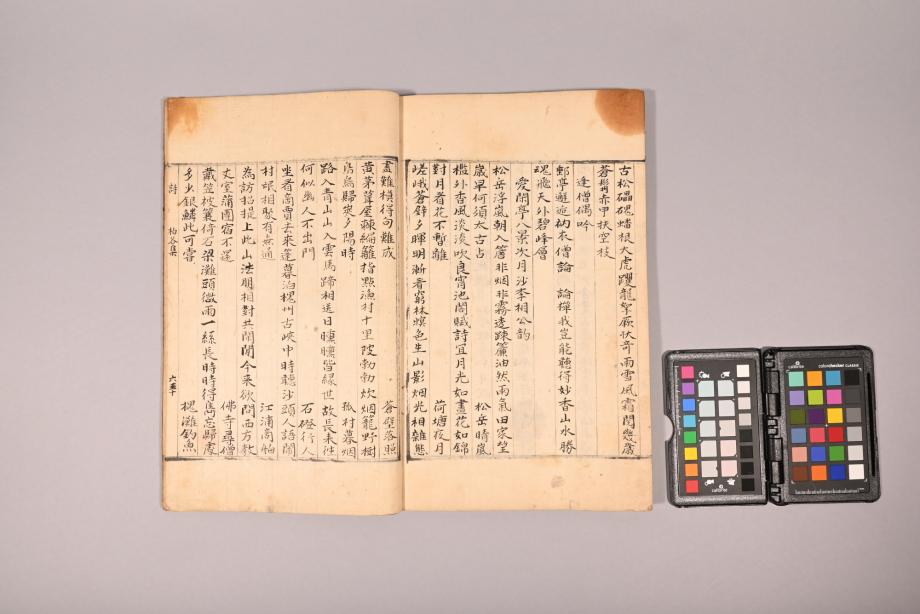 古松礧磈蟠根大虎躩龍挐厥狀奇雨雪風霜閱幾歲
蒼髥赤甲扶空枝
逢僧偶吟
郵亭邂逅衲衣僧論 論禪我豈能聽得妙香山水勝
魂飛天外碧峰層
愛閑亭八景次月沙李相公韵
松岳浮嵐朝入簷非烟非霧透疎簾油然雨氣田家望
歲旱何須太古占 松岳晴嵐
檻外香風淡淡吹良宵池閣賦詩宜月光如晝花如錦
對月看花不暫離 荷塘夜月
嵯峨蒼壁夕暉明漸看窮林暝色生山影烟光相雜態
畵難模得句難成 蒼壁落照
黄茅葺屋棘編籬指點漁村十里陂勃勃炊烟籠野樹
鳥烏歸 夕陽時 孤村暮烟
路入青山山入雲馬蹄相送日曛曛皆緣世故長來往
何似幽人不出門 石磴行人
坐看商賈去來篷暮泊槐州古峽中時聽沙頭人語鬧
村氓相聚有無通 江浦商帆
為訪招提上此山法朋相對共閑閑今來欲問西方敎
丈室蒲團宿不還 佛寺尋僧
戴笠披簑倚石梁灘頭微雨一絲長時時得雋忘歸處
多少銀鱗此可嘗 槐灘釣魚
詩 柏谷集 六五十
calibrite colorchecker CLASSIC
calibrite